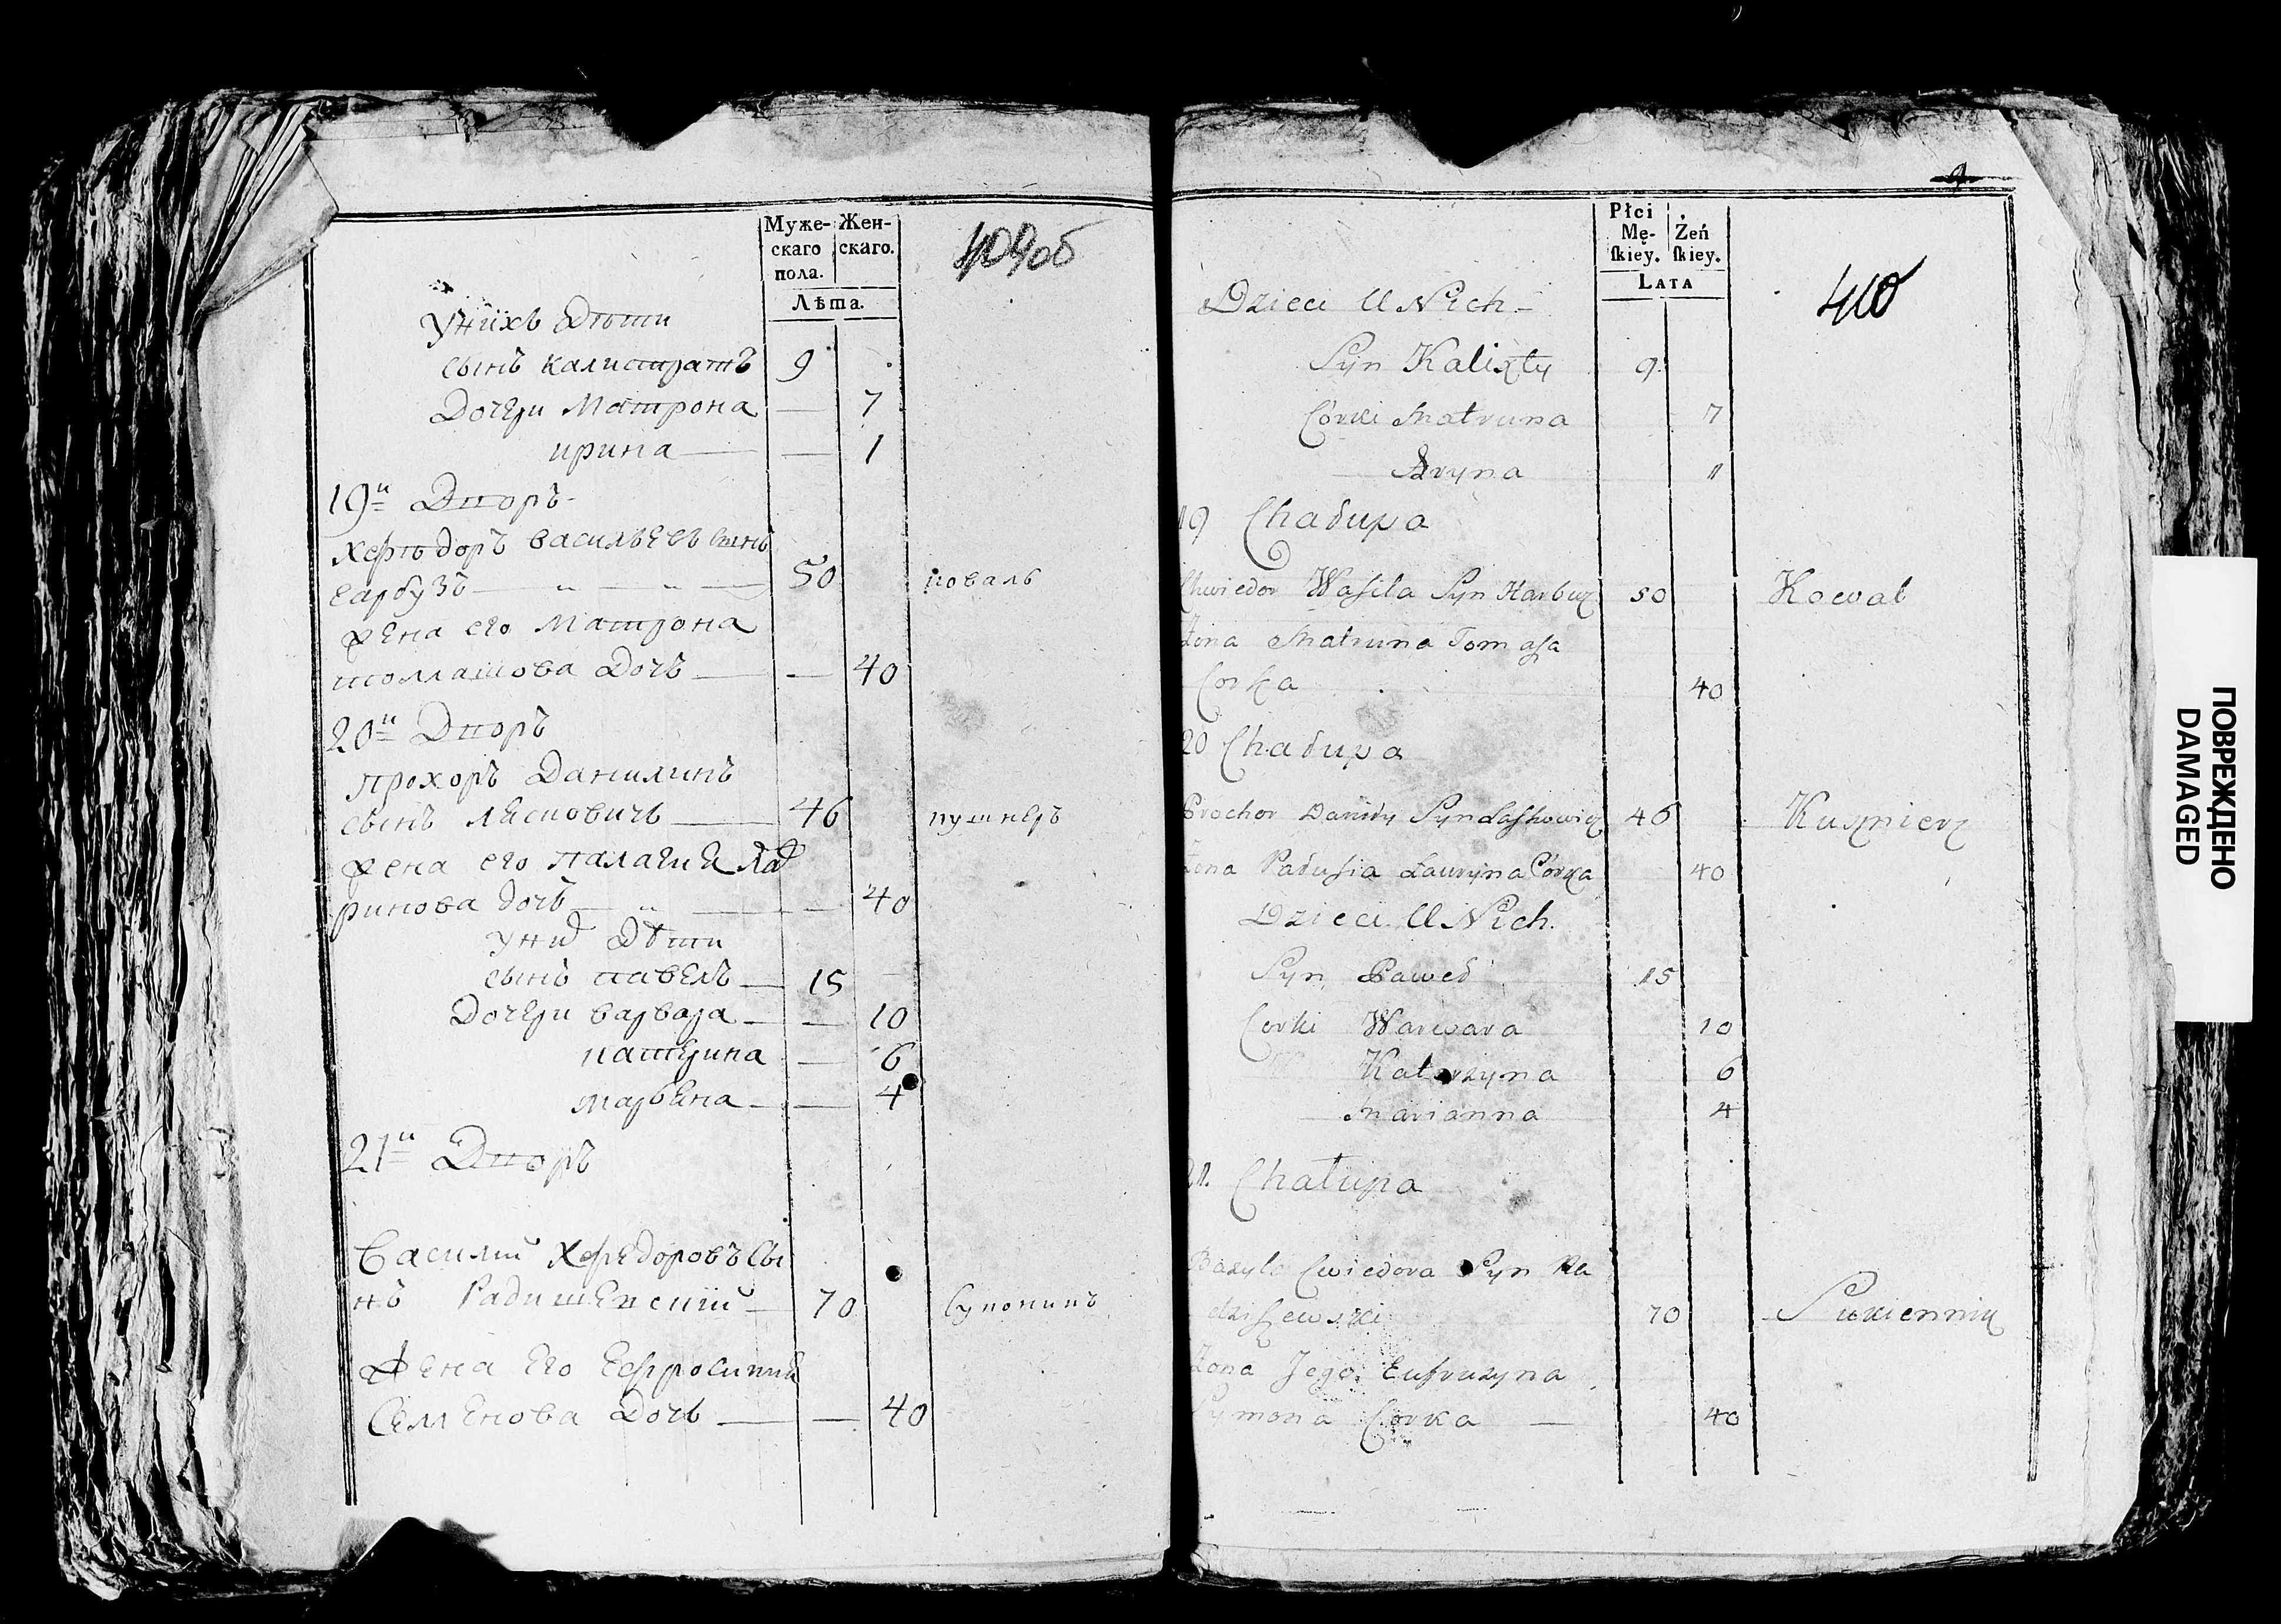 Муже-
скаго
пола.
Жен-
скаго.
Лѣта.
409об
У нихъ дѣти
сынъ калистратъ 9
Дочери Матрона — 7
ирина — — 1
19й Дворъ
Хефтодоръ васильевъ сынъ
гарбузъ — " — " — 50 коваль
жена его Матрона
томашова Дочь — — 40
20й Дворъ
прохоръ Данилинъ
сынъ лясковичь — 46 кушнеръ
жена его палагия Лав
ринова дочь — " — — 40
у них дѣти
сынъ павелъ — 15 —
Дочери варвара — — 10
катерина — 6
марьяна — — 4
21й Дворъ
Василий Хефедоровъ сы
нъ Радишевский — 70 сукониkъ
Жена Его Ефросиния
Семенова Дочь — — 40
Płci
Mę-
ſkiey.
Żeń
ſkiey.
LATA
410
Dzieci U Nich -
Syn Kalixty 9
Córki Matruna 7
Aryna 11
19 Chałupa
Chwiedor Wasila Syn Harbuz 50 Kowal
Żona Matruna Tomasa
Corka 40
20 Chałupa
Prochor Daniły Syn Laskowicz 46 Kuznierz
Żona Pałusia Ławryna Córka 40
Dzieci U Nich.
Syn Paweł 15
Corki Warwara 10
Katarzyna 6
Marianna 4
21. Chałupa
Bazyli Cwiedora Syn Ra
dziszewski 70 Sukiennik
Żona Jego Eufruzyna
Symona Corka — 40
ПОВРЕЖДЕНО
DAMAGED